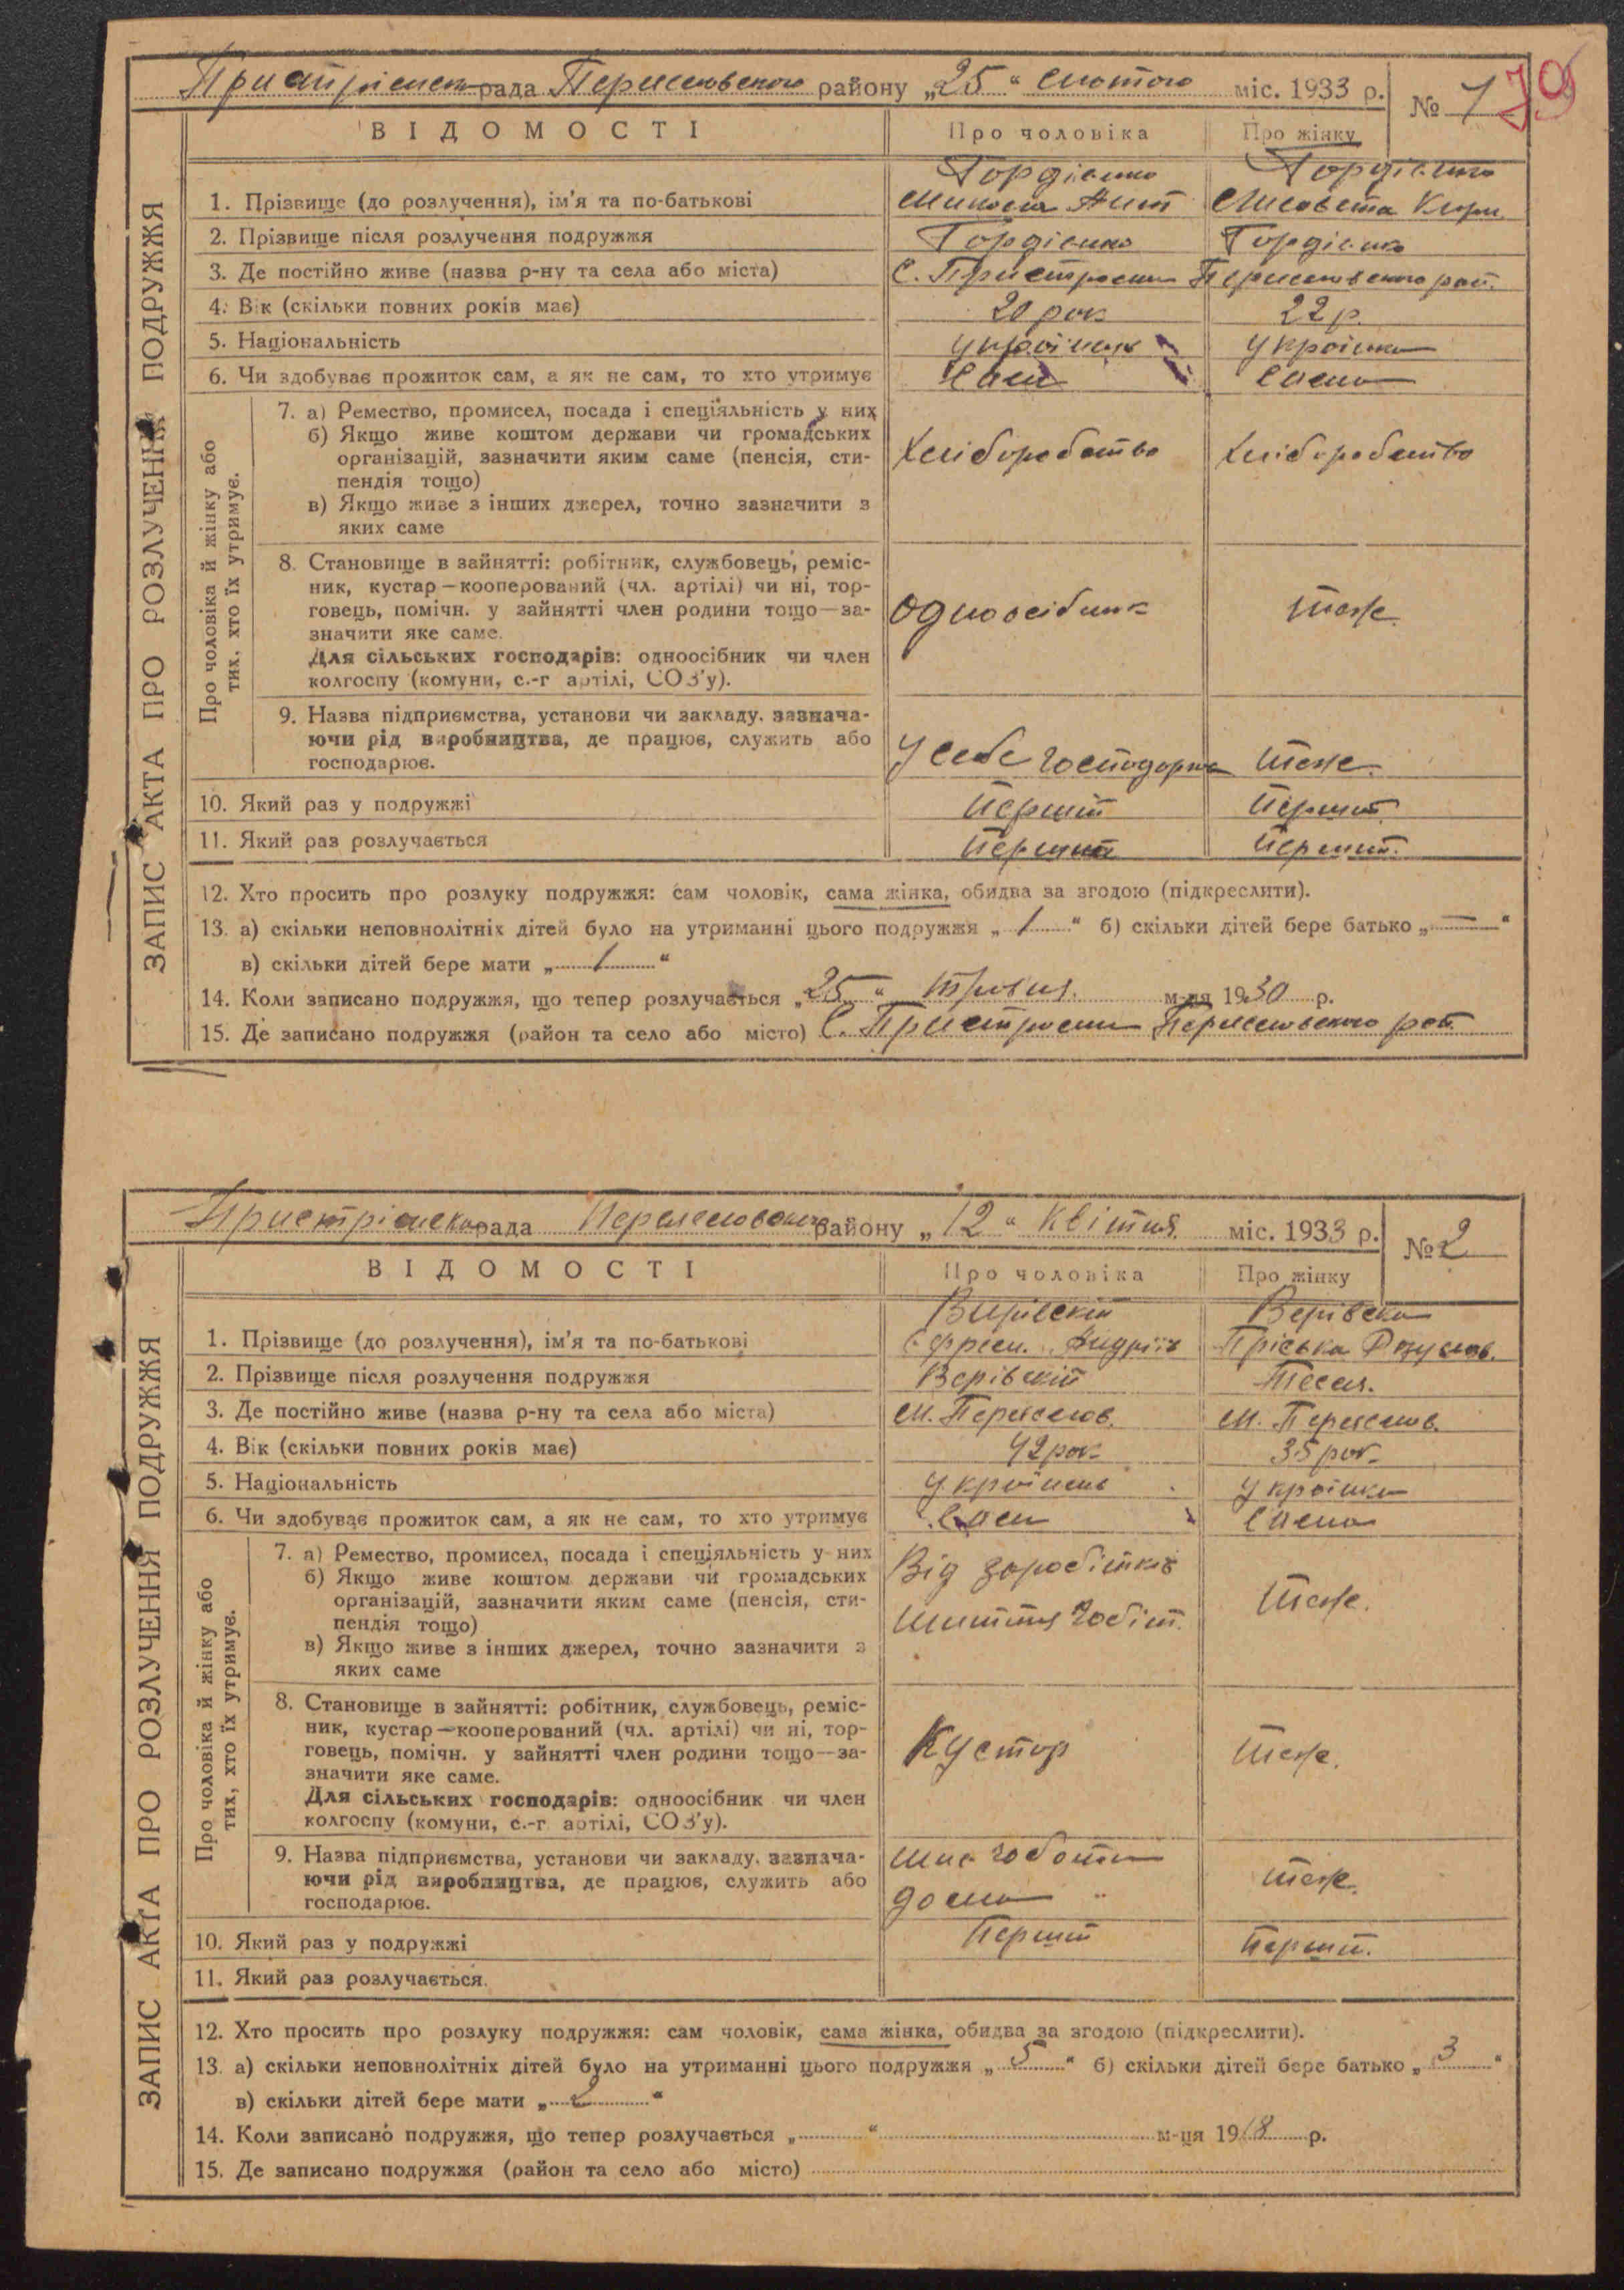 рада района „25“ лютого міс. 1933 р.
№ 1
79
ВІДОМОСТІ
Про чоловіка
Про жінку
ЗАПИС АКТА ПРО РОЗЛУЧЕННЯ ПОДРУЖЖЯ
Гордієнко Гордієнко
1. Прізвище (до розлучення), ім'я та по-батькові Микола
2. Прізвище після розлучення подружжя Гордієнко Гордієнко
3. Де постійно живе (назва р-ну та села або міста) С.
4. Вік (скільки повних років має) 20 рок 22 р.
5. Національність українець українка
6. Чи здобуває прожиток сам, а як не сам, то хто утримує сам сама
Про чоловіка й жінку або
тих, хто їх утримує.
7. а) Ремество, промисел, посада і спеціяльність у них
б) Якщо живе коштом держави чи громадських
організацій, зазначити яким саме (пенсія, сти-
пендія тощо)
в) Якщо живе з інших джерел, точно зазначити з
яких саме
хліборобство хліборобство
8. Становище в зайнятті: робітник, службовець, реміс-
ник, кустар—кооперований (чл. артілі) чи ні, тор-
говець, помічн. у зайнятті член родини тощо—за-
значити яке саме.
Для сільських господарів: одноосібник чи член
колгоспу (комуни, с.-г артілі, СОЗ'у).
одноосібник теж.
9. Назва підприємства, установи чи закладу, зазнача-
ючи рід виробництва, де працює, служить або
господарює.
У себе теж.
10. Який раз у подружжі перший перший
11. Який раз розлучається перший перший
12. Хто просить про розлуку подружжя: сам чоловік, сама жінка, обидва за згодою (підкреслити).
13. а) скільки неповнолітніх дітей було на утриманні цього подружжя „1“ б) скільки дітей бере батько „—“
в) скільки дітей бере мати „1“
14. Коли записано подружжя, що тепер розлучається „25“ травня м-ця 1930 р.
15. Де записано подружжя (район та село або місто) С.
рада району „12“ Квітня міс. 1933 р.
№ 2
ВІДОМОСТІ
Про чоловіка
Про жінку
ЗАПИС АКТА ПРО РОЗЛУЧЕННЯ ПОДРУЖЖЯ
1. Прізвище (до розлучення), ім'я та по-батькові Пріська
2. Прізвище після розлучення подружжя Верівский
3. Де постійно живе (назва р-ну та села або міста) м. м.
4. Вік (скільки повних років має) 42 рок 35 рок
5. Національність українець українка
6. Чи здобуває прожиток сам, а як не сам, то хто утримує сам сама
Про чоловіка й жінку або
тих, хто їх утримує.
7. а) Ремество, промисел, посада і спеціяльність у них
б) Якщо живе коштом держави чи громадських
організацій, зазначити яким саме (пенсія, сти-
пендія тощо)
в) Якщо живе з інших джерел, точно зазначити з
яких саме
Від заробітків
шиття чобіт. теж.
8. Становище в зайнятті: робітник, службовець, реміс-
ник, кустар—кооперований (чл. артілі) чи ні, тор-
говець, помічн. у зайнятті член родини тощо—за-
значити яке саме.
Для сільських господарів: одноосібник чи член
колгоспу (комуни, с.-г артілі, СОЗ'у).
Кустар теж.
9. Назва підприємства, установи чи закладу, зазнача-
ючи рід виробництва, де працює, служить або
господарює.
чоботи
дома теж.
10. Який раз у подружжі перший перший.
11. Який раз розлучається.
12. Хто просить про розлуку подружжя: сам чоловік, сама жінка, обидва за згодою (підкреслити).
13. а) скільки неповнолітніх дітей було на утриманні цього подружжя „5“ б) скільки дітей бере батько „3“
в) скільки дітей бере мати „2“
14. Коли записано подружжя, що тепер розлучається „ “ м-ця 1918 р.
15. Де записано подружжя (район та село або місто)